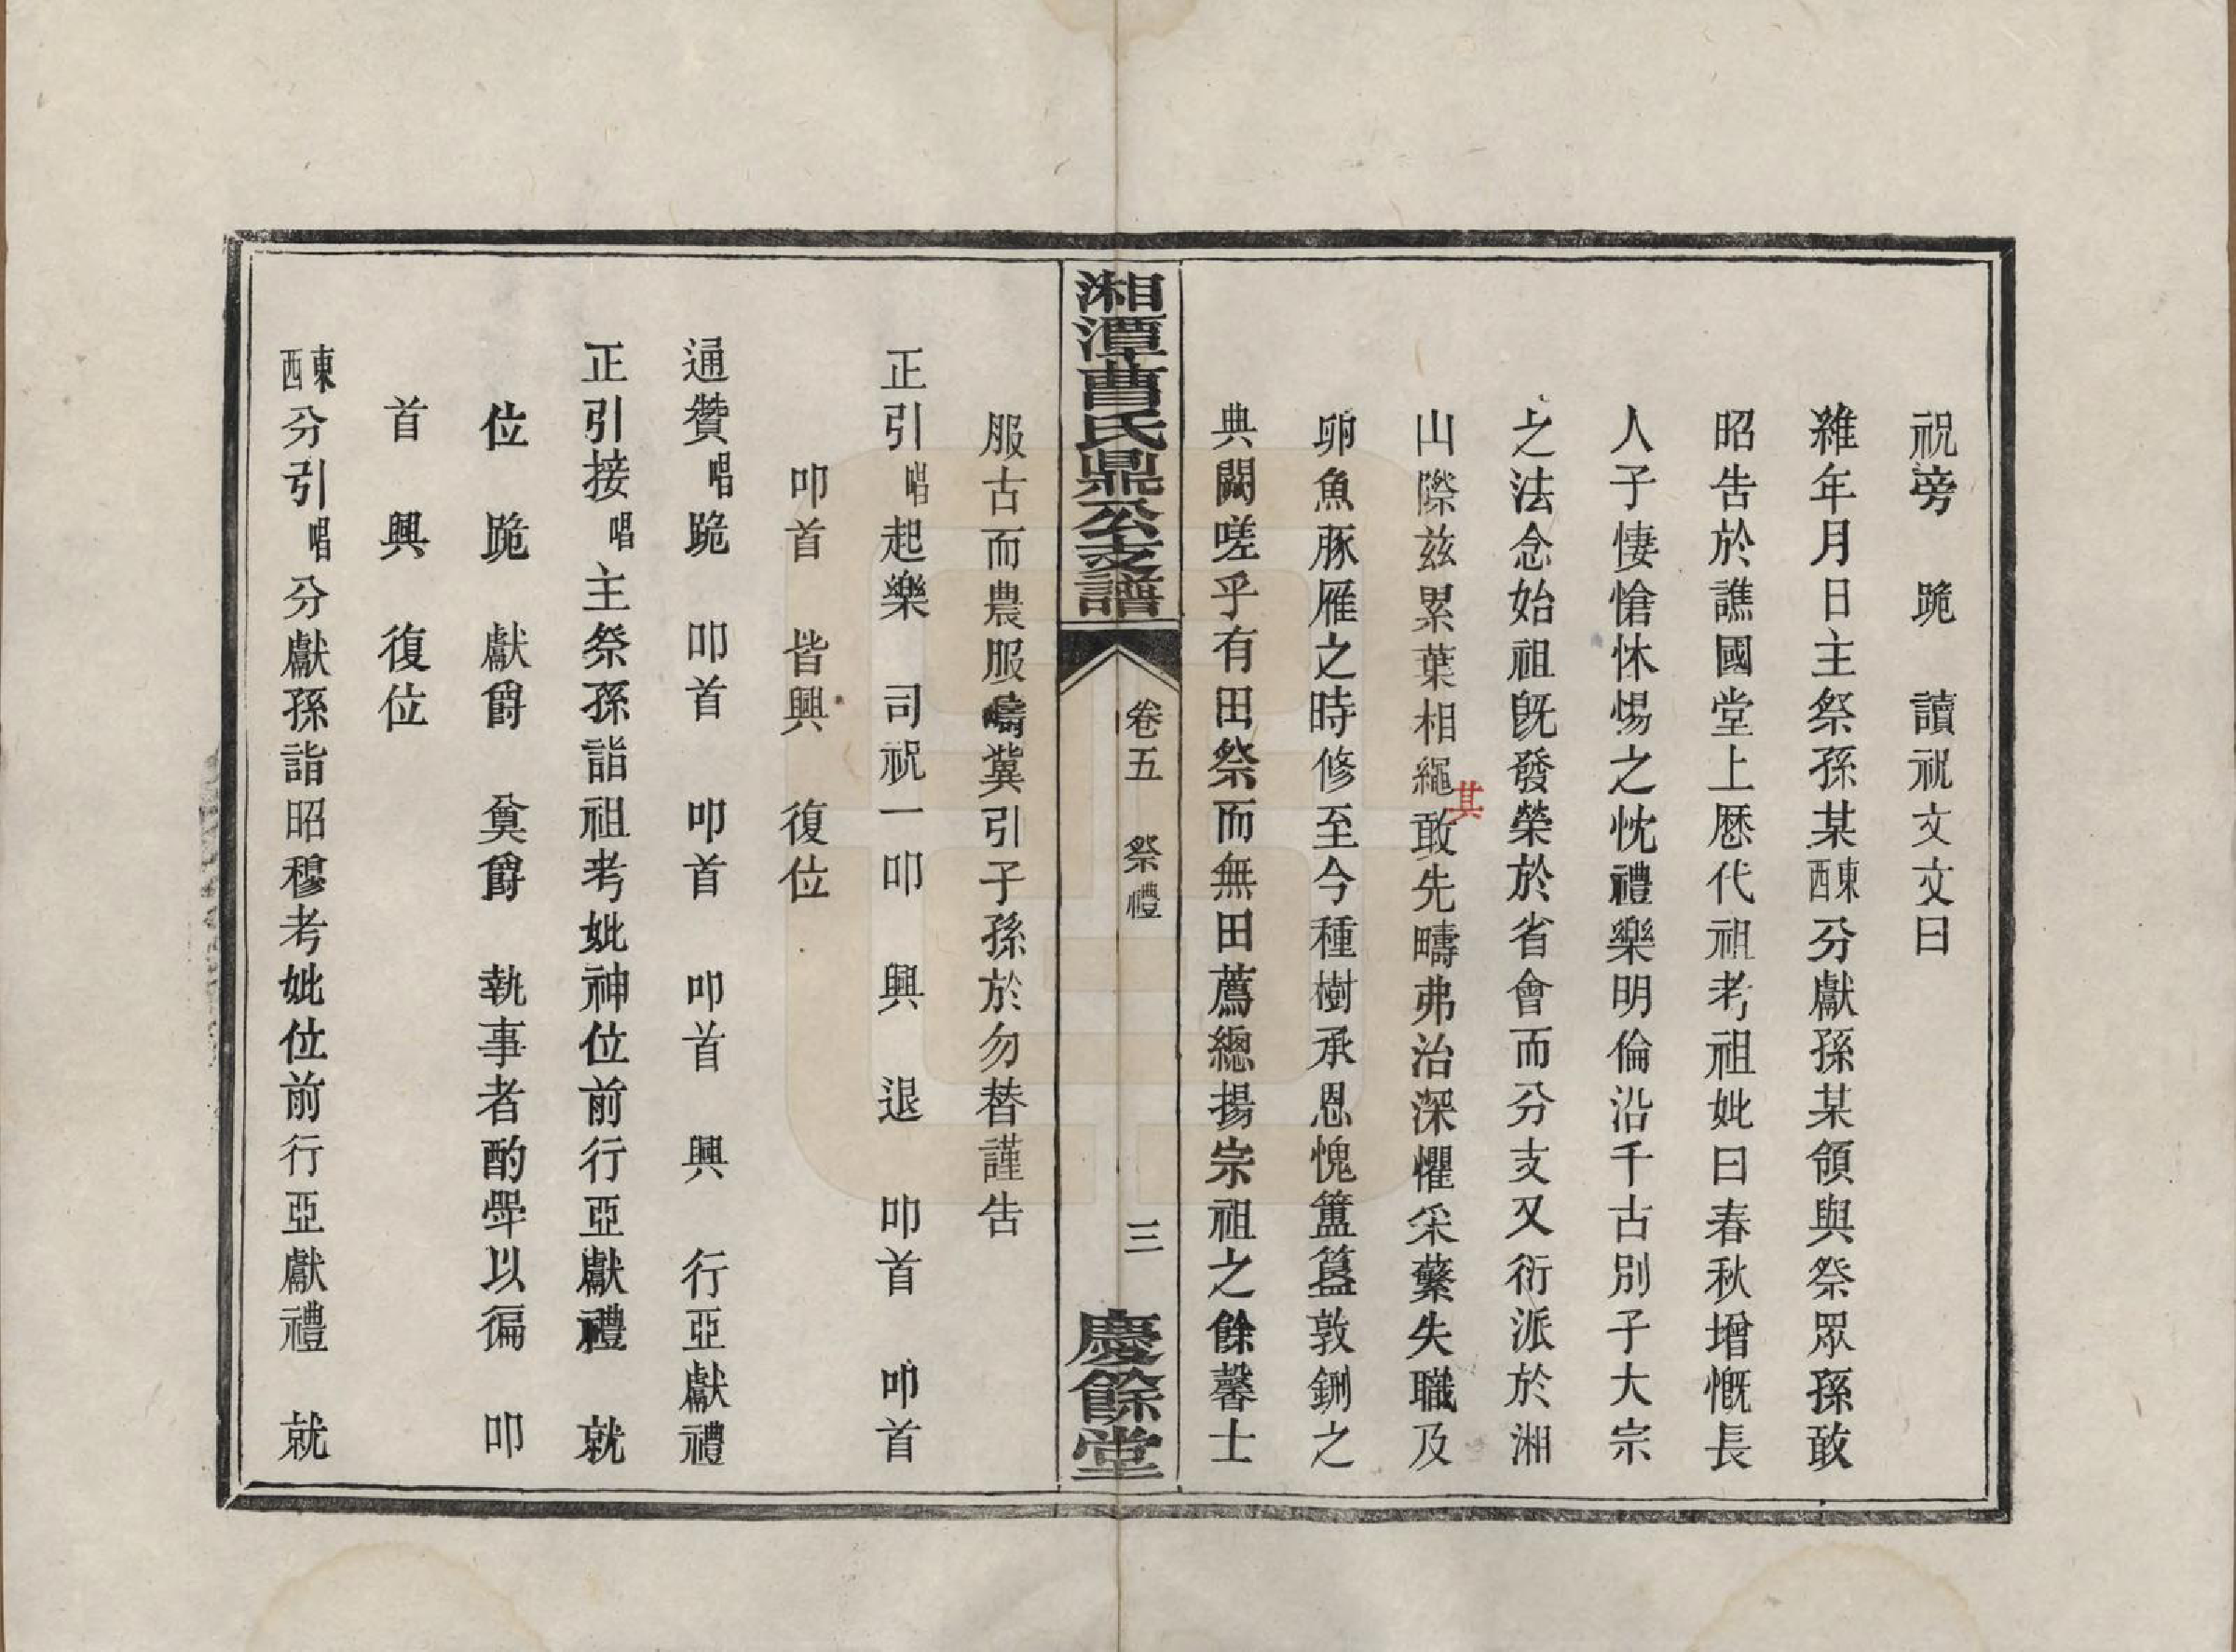 祝旁　跪　讀祝文文曰
維年月日主祭孫某東西分獻孫某領與祭眾孫敢
昭告於譙國堂上歷代祖考祖妣曰春秋增慨長
人子悽愴怵惕之忱禮樂明倫沿千古別子大宗
之法念始祖旣發榮於省會而分支又衍派於湘
山際玆累葉相繩其敢先疇弗治深懼采蘩失職及
卵魚豚雁之時修至今種樹承恩愧簠簋敦鉶之
典闕嗟乎有田祭而無田薦總揚宗祖之餘馨士
湘潭曹氏鼎公支譜
卷五　祭禮
三
慶餘堂
服古而農服疇冀引子孫於勿替謹告
正引唱起樂　司祝一叩　興　退　叩首　叩首
叩首　皆興　復位
通贊唱跪　叩首　叩首　叩首　興　行亞獻禮
正引接唱主祭孫詣祖考妣神位前行亞獻禮　就
位　跪　獻爵　奠爵　執事者酌斝以徧　叩
首　興　復位
東西分引唱分獻孫詣昭穆考妣位前行亞獻禮　就